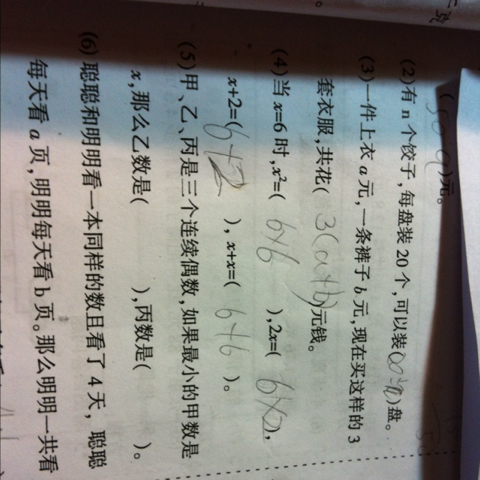 )元。
(2)有 n 个饺子,每盘装 20 个,可以装( )盘。
(3)一件上衣 a 元,一条裤子 b 元,现在买这样的 3
套衣服,共花( 3(a+b) )元钱。
(4)当 x=6 时,x²=( 6×6 ),2x=( 6×2 ),
x+2=( 6+2 ),x+x=( 6+6 )。
(5)甲、乙、丙是三个连续偶数,如果最小的甲数是
x,那么乙数是( ),丙数是( )。
(6)聪聪和明明看一本同样的数且看了 4 天,聪聪
每天看 a 页,明明每天看 b 页。那么明明一共看